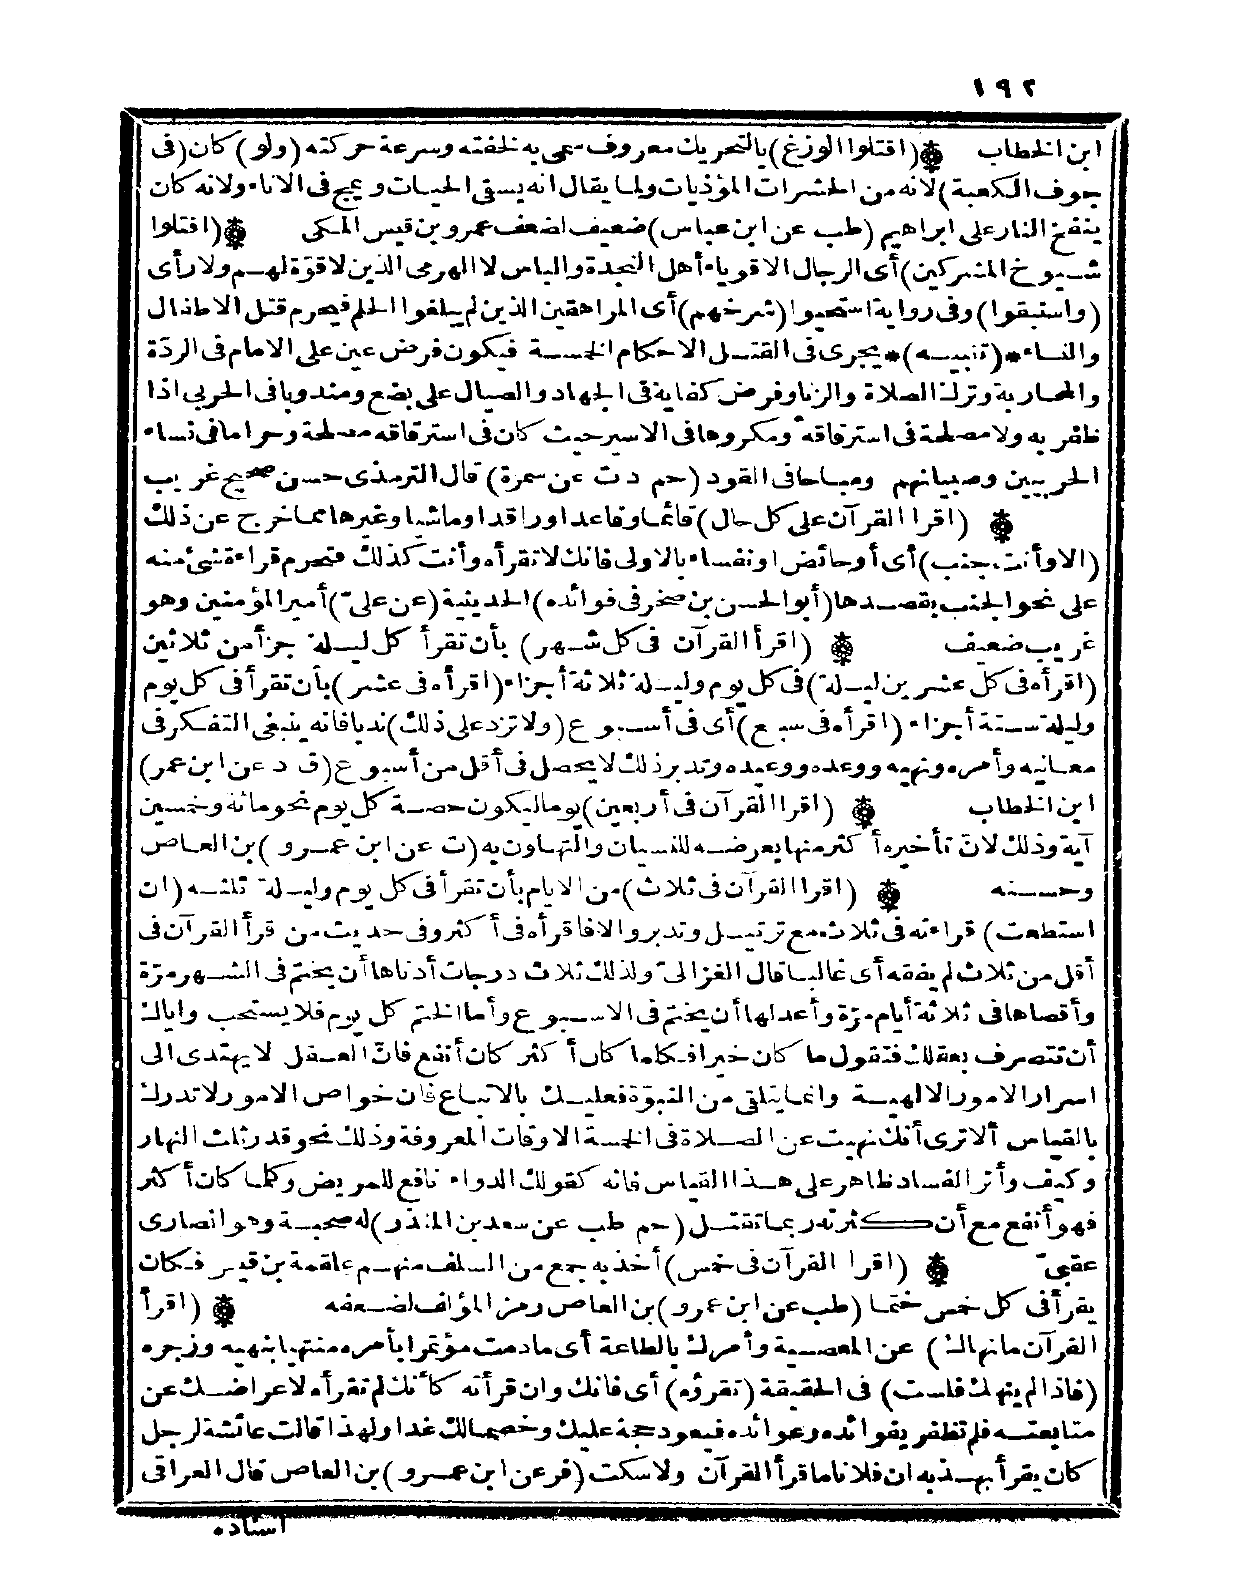 ١٩٢
ابن الخطاب ۞ (اقتلوا الوزغ) بالتحريك معروف سمى به لخفته وسرعة حركته (ولو) كان (فى
جوف الكعبة) لانه من الحشرات المؤذيات ولما يقال انه يسقى الحيات ويمج فى الاناء ولانه كان
ينفخ النار على ابراهيم (طب عن ابن عباس) ضعيف لضعف عمرو بن قيس المكى ۞ (اقتلوا
شيوخ المشركين) أى الرجال الاقوياء أهل النجدة والباس لا الهرمى الذين لا قوة لهم ولا رأى
(واستبقوا) وفى رواية استحيوا (شرخهم) أى المراهقين الذين لم يبلغوا الحلم فيحرم قتل الاطفال
والنساء * (تنبيه) * يجرى فى القتل الاحكام الخمسة فيكون فرض عين على الامام فى الردة
والمحاربة وترك الصلاة والزنا وفرض كفاية فى الجهاد والصيال على بضع ومندوبا فى الحربى اذا
ظفر به ولا مصلحة فى استرقاقه ومكروها فى الاسير حيث كان فى استرقاقه مصلحة وحراما فى نساء
الحربيين وصبيانهم ومباحا فى القود (حم د ت عن سمرة) قال الترمذى حسن صحيح غريب
۞ (اقرا القرآن على كل حال) قائما وقاعدا وراقدا وماشيا وغيرها مما خرج عن ذلك
(الا وأنت جنب) أى أو حائض او نفساء بالاولى فانك لا تقرأه وأنت كذلك فتحرم قراءة شئ منه
على نحو الجنب بقصدها (أبو الحسن بن صخر فى فوائده) الحديثية (عن على) أمير المؤمنين وهو
غريب ضعيف ۞ (اقرأ القرآن فى كل شهر) بأن تقرأ كل ليلة جزأ من ثلاثين
(اقرأه فى كل عشرين ليلة) فى كل يوم وليلة ثلاثة أجزاء (اقرأه فى عشر) بأن تقرأ فى كل يوم
وليلة ستة أجزاء (اقرأه فى سبع) أى فى أسبوع (ولا تزد على ذلك) ندبا فانه ينبغى التفكر فى
معانيه وأمره ونهيه ووعده ووعيده وتدبر ذلك لا يحصل فى أقل من أسبوع (ق د عن ابن عمر)
ابن الخطاب ۞ (اقرا القرآن فى أربعين) يوما ليكون حصة كل يوم نحو مائة وخمسين
آية وذلك لان تأخيره أكثر منها يعرضه للنسيان والتهاون به (ت عن ابن عمرو) بن العاص
وحسنه ۞ (اقرا القرآن فى ثلاث) من الايام بأن تقرأ فى كل يوم وليلة ثلثه (ان
استطعت) قراءته فى ثلاث مع ترتيل وتدبر والا فاقرأه فى أكثر وفى حديث من قرأ القرآن فى
أقل من ثلاث لم يفقه أى غالبا قال الغزالى ولذلك ثلاث درجات أدناها أن يختم فى الشهر مرة
وأقصاها فى ثلاثة أيام مرة وأعدلها أن يختم فى الاسبوع وأما الختم كل يوم فلا يستحب واياك
أن تتصرف بعقلك فتقول ما كان خيرا فكلما كان أكثر كان أنفع فان العقل لا يهتدى الى
اسرار الامور الالهية وانما يتلقى من النبوة فعليك بالاتباع فان خواص الامور لا تدرك
بالقياس ألا ترى أنك نهيت عن الصلاة فى الخمسة الاوقات المعروفة وذلك نحو قدر ثلث النهار
وكيف وأثر الفساد ظاهر على هذا القياس فانه كقولك الدواء نافع للمريض وكلما كان أكثر
فهو أنفع مع أن كثرته ربما تقتل (حم طب عن سعد بن المنذر) له صحبة وهو انصارى
عقبى ۞ (اقرا القرآن فى خمس) أخذ به جمع من السلف منهم علقمة بن قيس فكان
يقرأ فى كل خمس ختما (طب عن ابن عمرو) بن العاص رمز المؤلف لضعفه ۞ (اقرأ
القرآن ما نهاك) عن المعصية وأمرك بالطاعة أى ما دمت مؤتمرا بأمره منتهيا بنهيه وزجره
(فاذا لم ينهك فلست) فى الحقيقة (تقرؤه) أى فانك وان قرأته كأنك لم تقرأه لاعراضك عن
متابعته فلم تظفر بفوائده وعوائده فيعود حجة عليك وخصما لك غدا ولهذا قالت عائشة لرجل
كان يقرأ بهذبه ان فلانا ما قرأ القرآن ولا سكت (فر عن ابن عمرو) بن العاص قال العراقى
اسناده